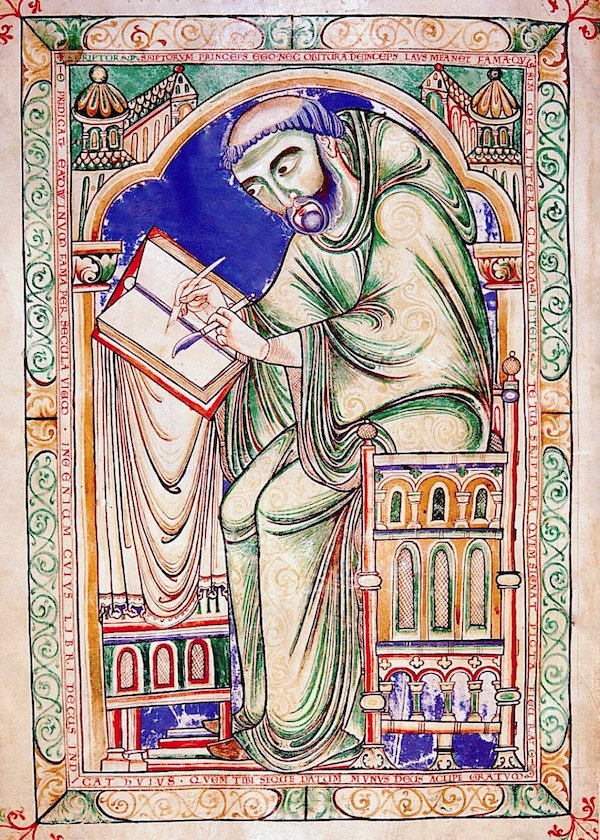 SCRIPTOR SRIPTORVM PRINCEPS EGO·NEC OBITURA DEINCEPS LAVS MEA NEC FAMA·QVI
SIM MEA LITTERA CLAMA· TE TUA SCRIPTURA QVEM SIGNAT PICTA FIGURA
PREDICAT EADWINVM FAMA PER SECULA VIVVM · INGENIUM CVIVS LIBRI DECUS INDI
CAT HVIVS · QVEM TIBI SEQUE DATUM MVNVS DEUS ACCIPE GRATVM